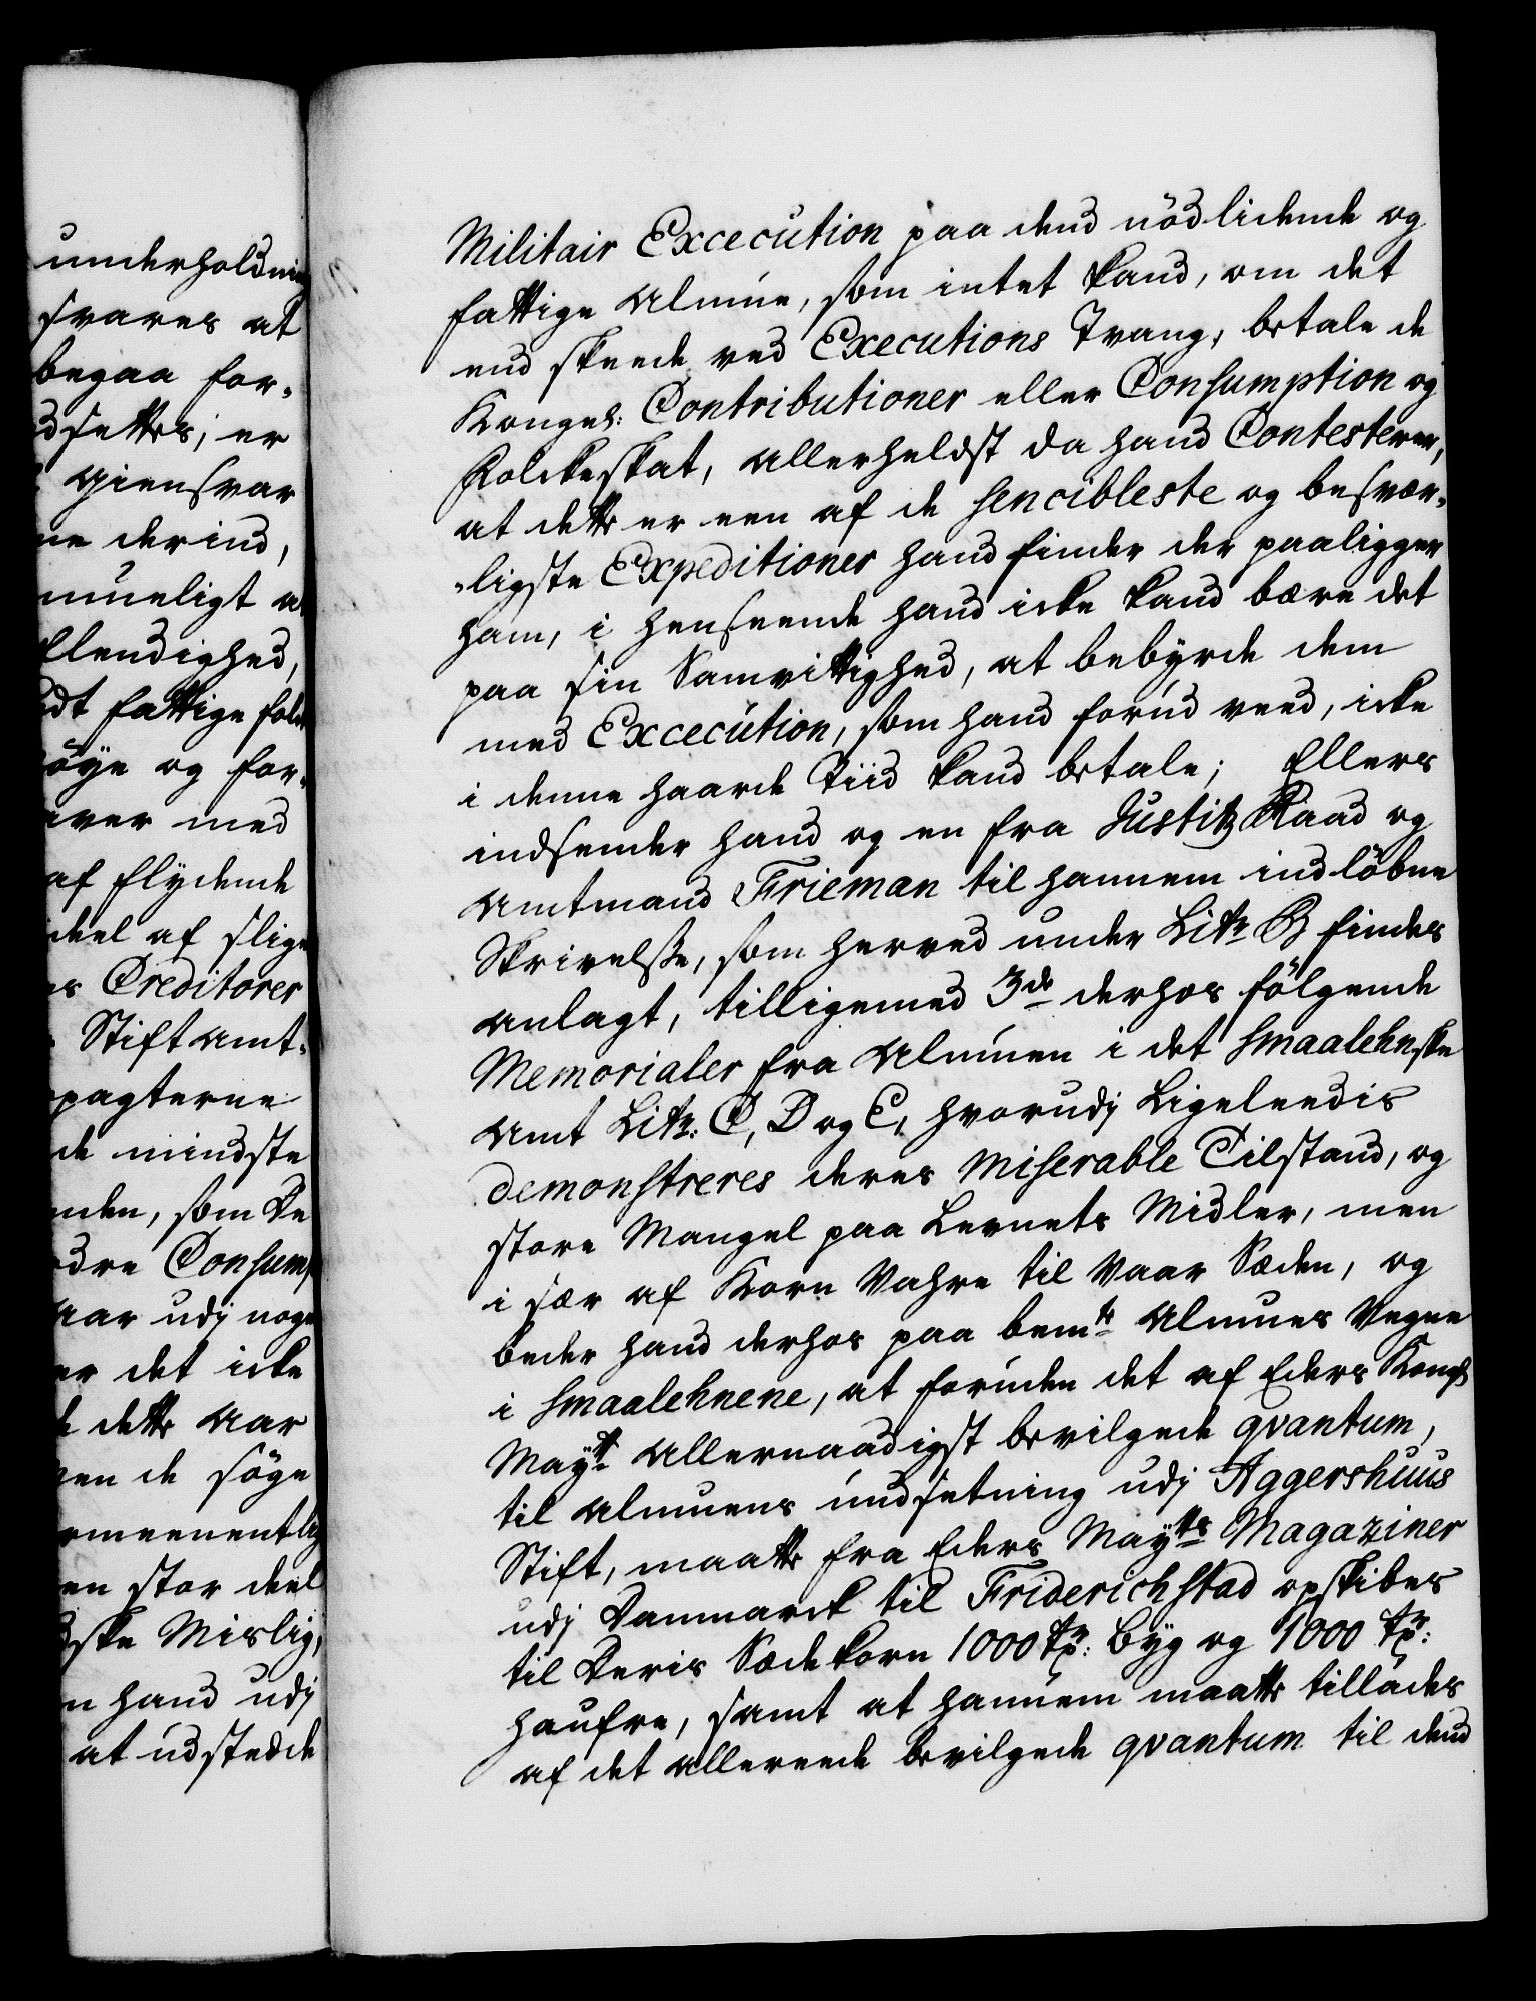 underholdnin
svares at
begaa for-
dsettes, er
giensvar
ne derind,
mueligt a
Elendighed,
dt fattige folk
öye og for-
aver med
af flydende
deel af slige
s Creditorer
Stiftamt-
pagterne
de mindste
nden, som De
dre Consump
aar udj noge
er det icke
dette Aar
en de söge
ormeenentlig
en stor deel
ske Mislig,
n hand udj
at udstedde
Militair Excecution paa dend nödlidende og
fattige Almue, som intet kand, om det
end skeede ved Executions Tvang, betale de
Kongel: Contributioner eller Consumption og
Folckeskat, allerheldst da hand Contesterer,
at dette er een af de sencibleste og besvær-
-ligste Expeditioner hand finder der paaligger
ham, i henseende hand icke kand bære det
paa sin Samvittighed, at bebyrde dem
med Excecution, som hand forud veed, icke
i denne haarde Tiid kand betale; Ellers
indsender hand og en fra Justitz Raad og
Amtmand Frieman til hannem indlöbne
Skrivelse, som herved under Litr B findes
anlagt, tilligemed 3de derhos fölgende
Memorialer fra Almuen i det Smaalehnske
Amt Litr: C, D og E, hvorudj Ligeleedis
demonstreres deres Miserable Tilstand, og
store Mangel paa Levnets Midler, men
i sær af Korn Vahre til Vaar Sæden, og
beder hand derhos paa bemte Almues Vegne
i Smaalehnene, at foruden det af Eders Kongl
Maytt Allernaadigst bevilgede qvantum,
til Almuens undsetning udj Aggershuus
Stift, maatte fra Eders Maytts Magaziner
udj Danmarck til Friderichstad opskibes
til Deris Sædekorn 1000 tr: byg og 1000 tr:
haufre, samt at hannem maatte tillades
af det allereede bevilgede qvantum til dend